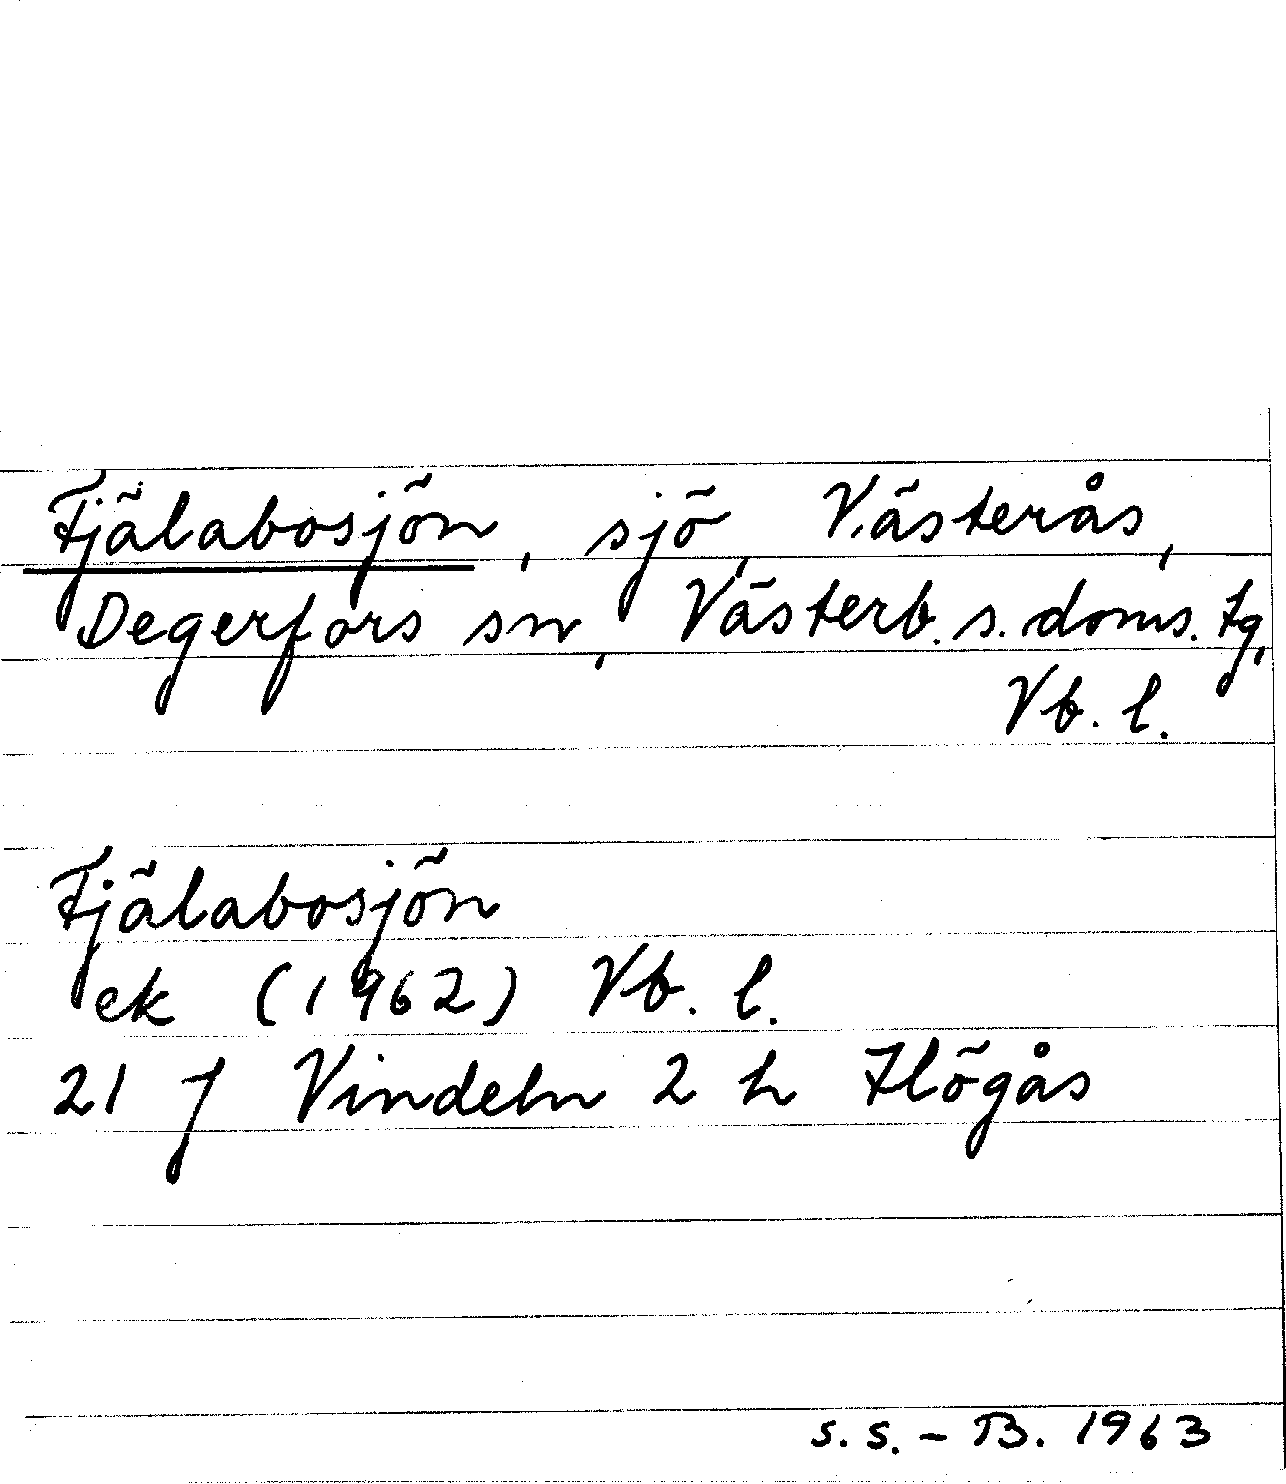 Fjälabosjön, sjö, Västerås,
Degerfors sn, Västerb. s. doms. tg,
Vb. l.
Fjälabosjön
ek (1962) Vb. l.
21 J Vindeln 2 h Högås
S. S. - B. 1963